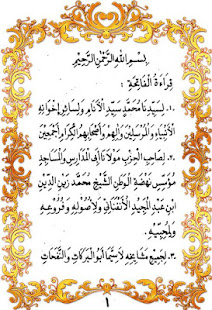 بِسْمِ اللهِ الرَّحْمٰنِ الرَّحِيْمِ
قِرَاءَةُ الْفَاتِحَةِ :
١. لِسَيِّدِنَا مُحَمَّدٍ سَيِّدِ الْأَنَامِ وَلِسَائِرِ إِخْوَانِهِ
الْأَنْبِيَاءِ وَالْمُرْسَلِيْنَ وَآلِهِمْ وَأَصْحَابِهِمُ الْكِرَامِ أَجْمَعِيْنَ
٢. لِصَاحِبِ الْحِزْبِ مَوْلَانَا أَبِى الْمَدَارِسِ وَالْمَسَاجِدِ
مُؤَسِّسِ نَهْضَةِ الْوَطَنِ الشَّيْخِ مُحَمَّد زَيْنِ الدِّيْنِ
ابْنِ عَبْدِ الْمَجِيْدِ الْأَنْفَنَانِى وَلِأُصُوْلِهِ وَفُرُوْعِهِ
وَلِمُحِبِّيْهِ
٣. لِجَمِيْعِ مَشَايِخِهِ لَاسِيَّمَا أَبُو الْبَرَكَاتِ وَالنَّفَحَاتِ
١